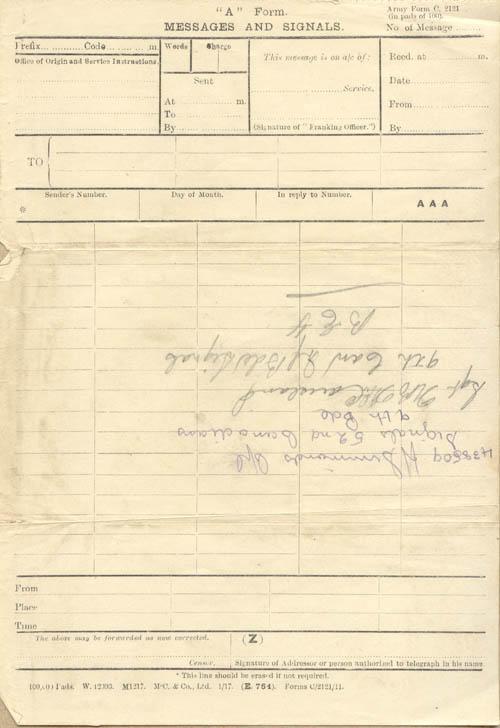 "A" Form.
MESSAGES AND SIGNALS.
Army Form C. 2121
(In pads of 100).
No of Message ............
Prefix............ Code............ m.
Office of Origin and Service Instructions.
Words Charge
Sent
At ............ m.
To ............
By ............
This message is on a/c of:
............ Service.
(Signature of "Franking Officer.")
Recd. at ............ m.
Date ............
From ............
By ............
TO
Sender's Number.
Day of Month.
In reply to Number.
AAA
*
438509 H Simmonds Cpl
Signals 52nd Canadians
9th Bde
Sgt
9th Can Inf Bde Signals
B E F
From
Place
Time
The above may be forwarded as now corrected.
(Z)
Censor.
Signature of Addressor or person authorised to telegraph in his name
* This line should be erased if not required.
100,000 Pads. W. 12393. M1217. McC. & Co., Ltd. 1/17. (E. 754). Forms C/2121/11.